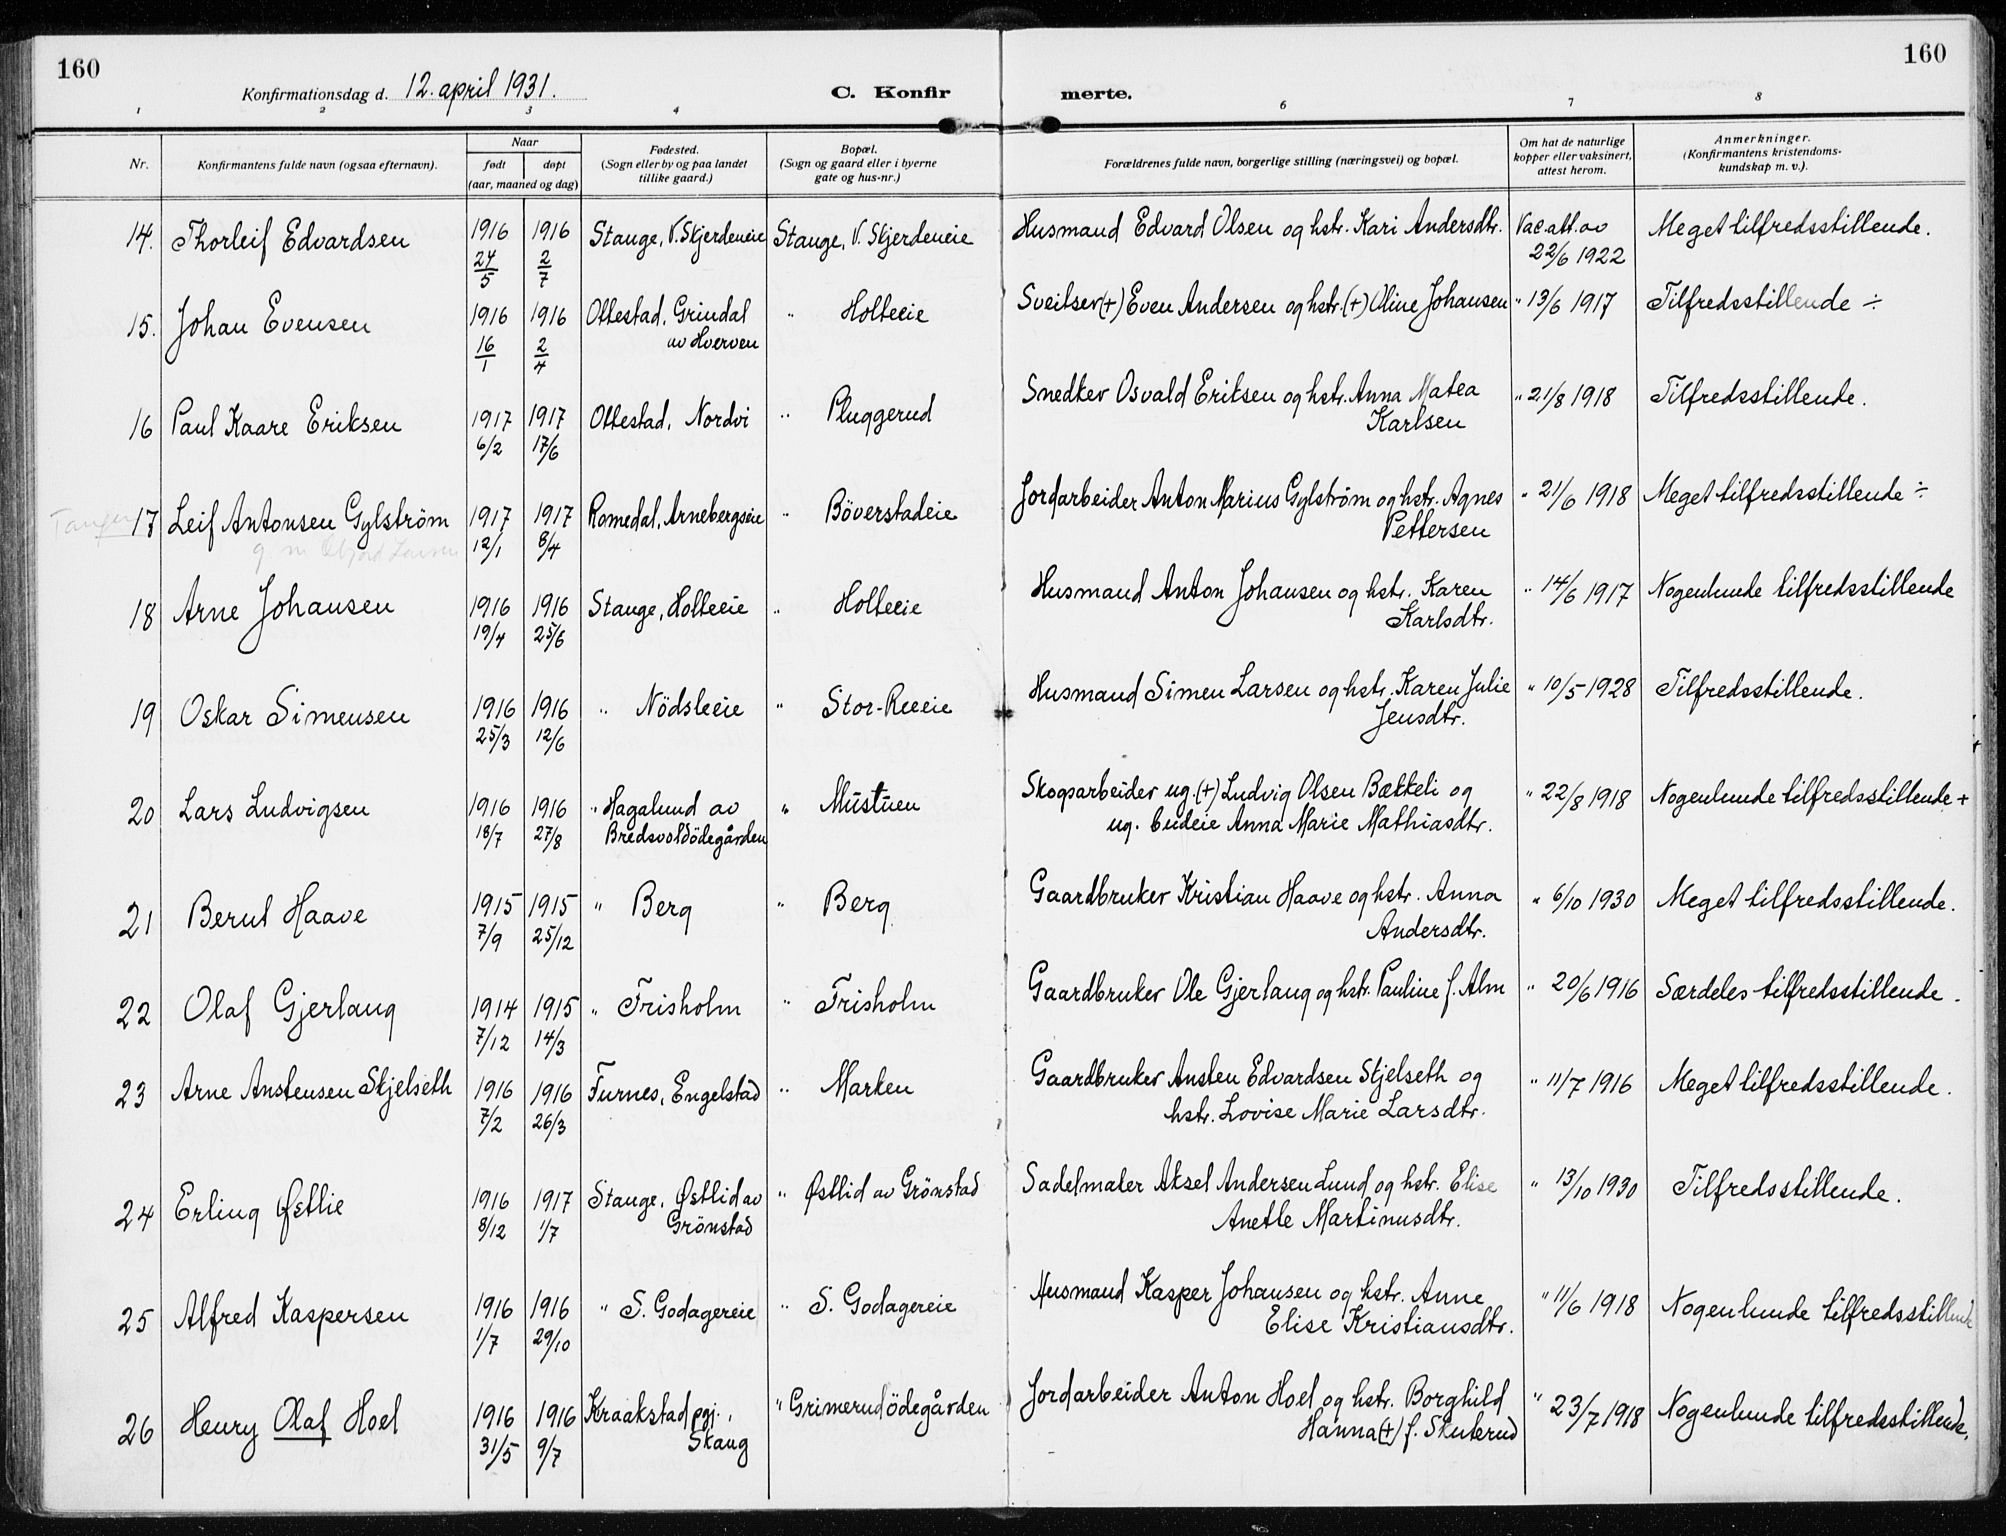 160
160
Konfirmationsdag d. 12. april 1931.
C. Konfir merte.
1 2 3 4 6 7 8
Nr.
Konfirmantens fulde navn (ogsaa efternavn).
Naar
født døpt
(aar, maaned og dag)
Fødested.
(Sogn eller by og paa landet
tillike gaard.)
Bopæl.
(Sogn og gaard eller i byerne
gate og hus-nr.)
Forældrenes fulde navn, borgerlige stilling (næringsvei) og bopæl.
Om hat de naturlige
kopper eller vaksinert,
attest herom.
Anmerkninger.
(Konfirmantens kristendoms-
kundskap m. v.).
14. Thorleif Edvardsen 1916 1916 Stange, V. Skjerdeneie Stange, V. Skjerdeneie Husmand Edvard Olsen og hstr. Kari Andersdtr. Vac. att. av Meget tilfredsstillende.
24/5 2/7 22/6 1922
15. Johan Evensen 1916 1916 Ottestad, Grindal " Holteeie Sveitser (+) Even Andersen og hstr. (+) Oline Johansen " 13/6 1917 Tilfredsstillende ÷
16/1 2/4 av Hverven
16 Paul Kaare Eriksen 1917 1917 Ottestad, Nordvi " Pluggerud Snedker Osvald Eriksen og hstr. Anna Matea " 21/8 1918 Tilfredsstillende.
6/2 17/6 Karlsen
Tangen 17 Leif Antonsen Gylström 1917 1917 Romedal, Arnebergseie " Böverstadeie Jordarbeider Anton Marius Gylström og hstr. Agnes " 21/6 1918 Meget tilfredsstillende ÷
g. m. 12/1 8/4 Pettersen
18 Arne Johansen 1916 1916 Stange, Holteeie " Holteeie Husmand Anton Johansen og hstr. Karen " 14/6 1917 Nogenlunde tilfredsstillende
19/4 25/6 Karlsdtr.
19 Oskar Simensen 1916 1916 " Nödsleeie " Stor-Reeeie Husmand Simen Larsen og hstr. Karen Julie " 10/5 1928 Tilfredsstillende.
25/3 12/6 Jensdtr.
20 Lars Ludvigsen 1916 1916 " Hagalund av " Mustuen Skogsarbeider ug. (+) Ludvig Olsen Bækkeli og " 22/8 1918 Nogenlunde tilfredsstillende +
18/7 27/8 Bredsvoldödegården ug. budeie Anna Marie Mathiasdtr.
21 Bernt Haave 1915 1915 " Berg " Berg Gaardbruker Kristian Haave og hstr. Anna " 6/10 1930 Meget tilfredsstillende.
7/9 25/12 Andersdtr.
22 Olaf Gjerlaug 1914 1915 " Frisholm " Frisholm Gaardbruker Ole Gjerlaug og hstr. Pauline f. Alm " 20/6 1916 Særdeles tilfredsstillende.
7/12 14/3
23 Arne Anstensen Skjelseth 1916 1916 Furnes, Engelstad " Marken Gaardbruker Ansten Edvardsen Skjelseth og " 11/7 1916 Meget tilfredsstillende.
7/2 26/3 hstr. Lovise Marie Larsdtr.
24 Erling Østlie 1916 1917 Stange, Østlid av " Østlid av Grönstad Sadelmaker Aksel Andersen Lund og hstr. Elise " 13/10 1930 Tilfredsstillende.
8/12 1/7 Grönstad Anette Martinusdtr.
25 Alfred Kaspersen 1916 1916 " S. Godagereie " S. Godagereie Husmand Kasper Johansen og hstr. Anne " 11/6 1918 Nogenlunde tilfredsstillende
1/7 29/10 Elise Kristiansdtr.
26 Henry Olaf Hoel 1916 1916 Kraakstad pgj., " Grimerudödegården Jordarbeider Anton Hoel og hstr. Borghild " 23/7 1918 Nogenlunde tilfredsstillende.
31/5 9/7 Skaug Hanna (+) f. Skuterud